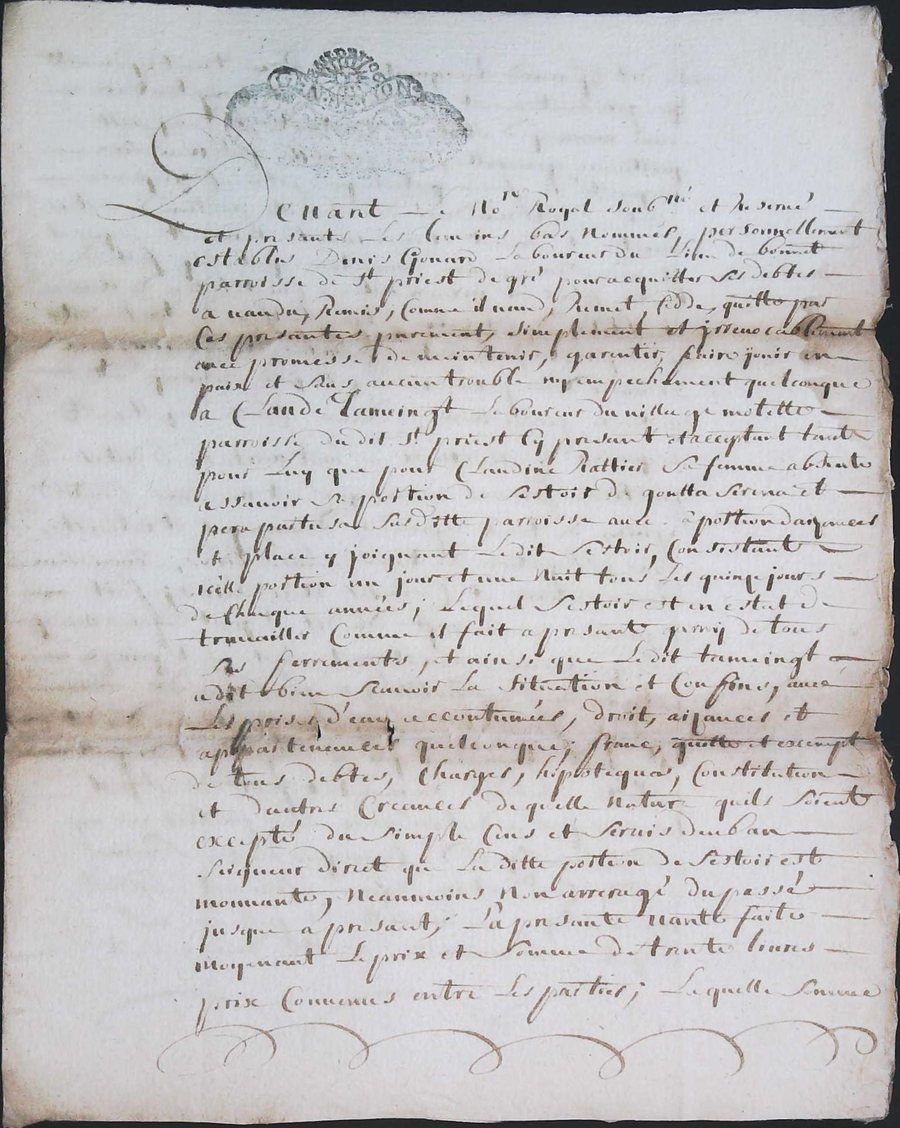 Devant Le No.re Royal soub.né et Reservé
et presants Les temoins bas Nommés, personnellement
establis Denis Gonard Laboureur du Lieu de bonnet
parroisse de St priest de gré pour acquitter ses debtes
a vandu, Remis, Comme il vand, Remet Cedde, quitte par
Ces presantes purement, simplement et irrevocablement
avec promesse de meintenir, garentir, faire jouir en
paix et sans aucun trouble ny empechement quelconque
a Claude Tameingt Laboureur du village motette
parroisse du dit St priest Cy present et acceptant tant
pour Luy que pour Claudine Rattier Sa femme absente
assavoir Sa portion de Sestoir de goutta Serena et
pera partusa Susditte parroisse avec portion daizances
et place y joignant Ledit Sestoir, Consistant
icelle portion un jour et une Nuit tous Les quinze jours
de Chaque années; Lequel Sestoir est en estat de
travailler Comme il fait a presant garny de tous
Ses ferrements, et ainsi que Ledit tameingt
a dit bien Scavoir La Situation et Confins, avec
Les prises d'eau accoutumées, droit, aizances et
appartenences quelconque; franc, quitte et exempt
de tous debtes, Charges, hipoteques, Constitution
et dautres Creances de quelle Nature quils Soient
excepté du Simple Cens et Servis deub au
Seigneur direct que La ditte portion de Sestoir est
mouvante, Neanmoins Non arreragé du passé
jusque a presant; La presante vante faite
moyenant Le prix et Somme de trente livres
prix Convenus entre Les parties; Laquelle Somme